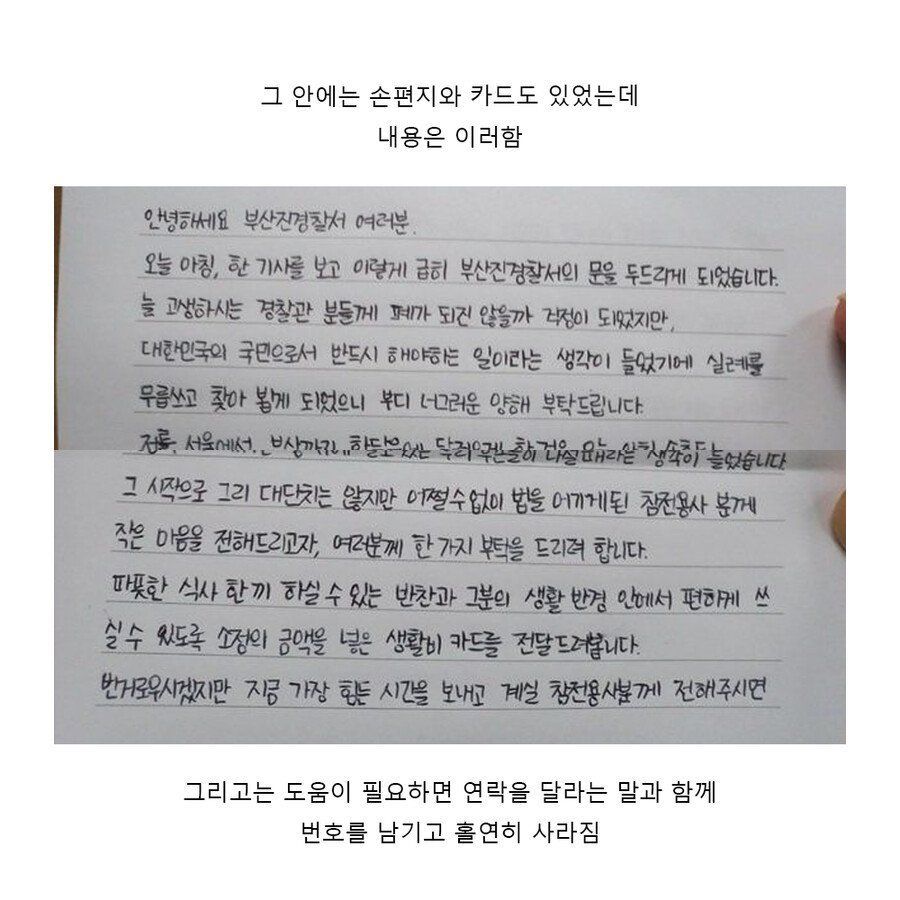 그 안에는 손편지와 카드도 있었는데
내용은 이러함
안녕하세요 부산진경찰서 여러분.
오늘 아침, 한 기사를 보고 이렇게 급히 부산진경찰서의 문을 두드리게 되었습니다.
늘 고생하시는 경찰관 분들께 폐가 되진 않을까 걱정이 되었지만,
대한민국의 국민으로서 반드시 해야하는 일이라는 생각이 들었기에 실례를
무릅쓰고 찾아 뵙게 되었으니 부디 너그러운 양해 부탁드립니다.
들었습니다
그 시작으로 그리 대단치는 않지만 어쩔수없이 법을 어기게된 참전용사 분께
작은 마음을 전해드리고자, 여러분께 한 가지 부탁을 드리려 합니다.
따뜻한 식사 한끼 하실 수 있는 반찬과 그분의 생활 반경 안에서 편하게 쓰
실 수 있도록 소정의 금액을 넣은 생활비 카드를 전달드려봅니다.
번거로우시겠지만 지금 가장 힘든 시간을 보내고 계실 참전용사분께 전해주시면
그리고는 도움이 필요하면 연락을 달라는 말과 함께
번호를 남기고 홀연히 사라짐